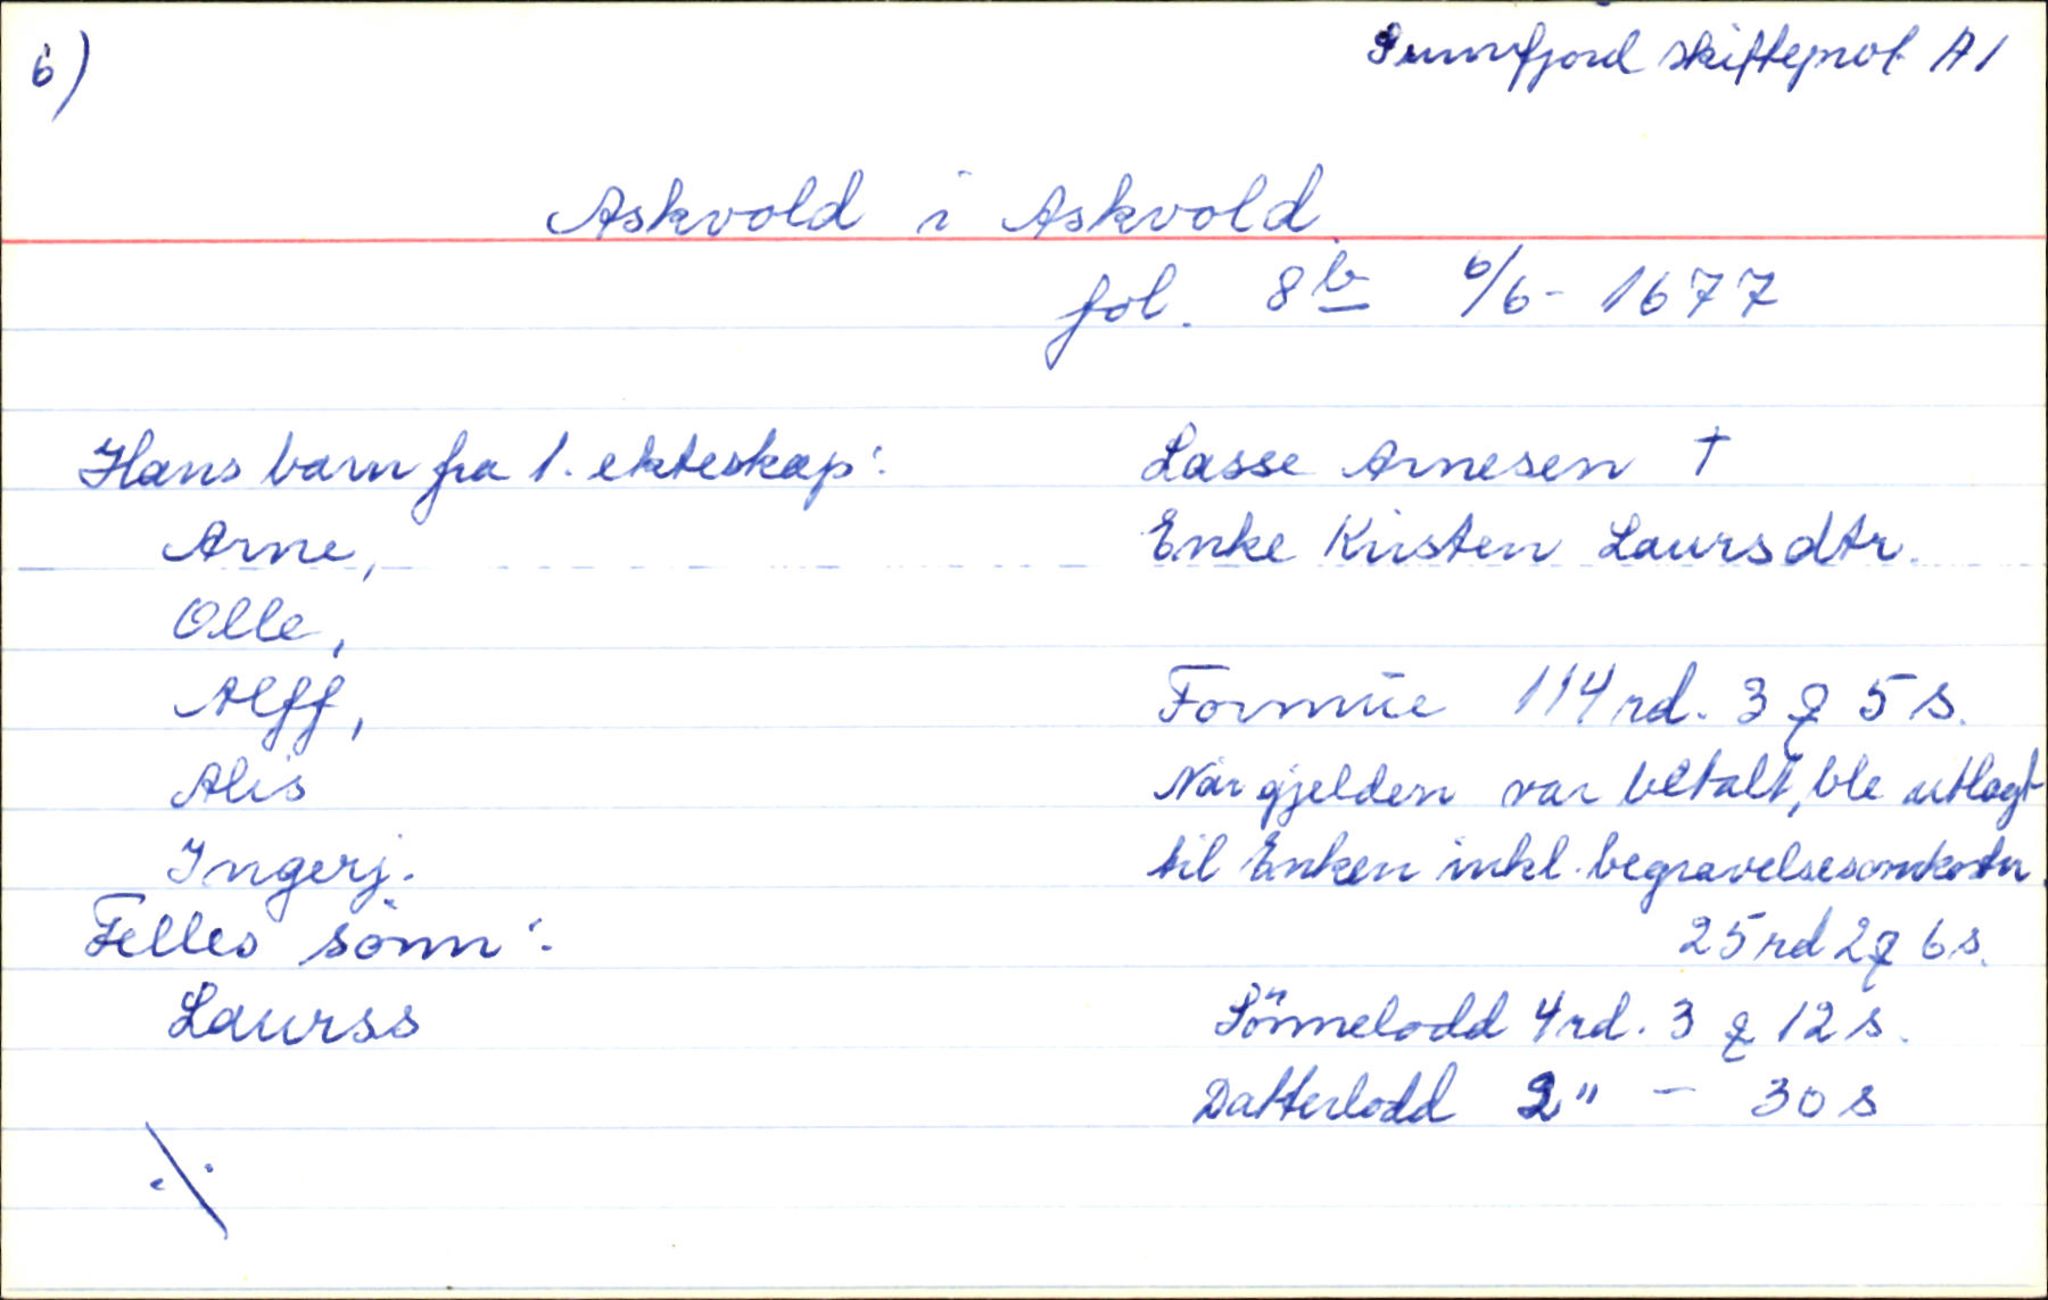 6)
Sunnfjord skifteprot. A 1
Askvold i Askvold.
fol. 8b 6/6- 1677
Hans barn fra 1. ekteskap:
Arne,
Olle,
Alff,
Alis
Ingerj.
Felles sönn:
Laurss
Lasse Arnesen †
Enke Kirsten Laursdtr.
Formue 114 rd. 3 q 5 s.
Når gjelden var betalt, ble utlagt
til Enken inkl. begravelsesomkostn.
25 rd 2 q 6 s.
Sönnelodd 4 rd. 3 q 12 s.
Datterlodd 2 " - 30 s
·\·